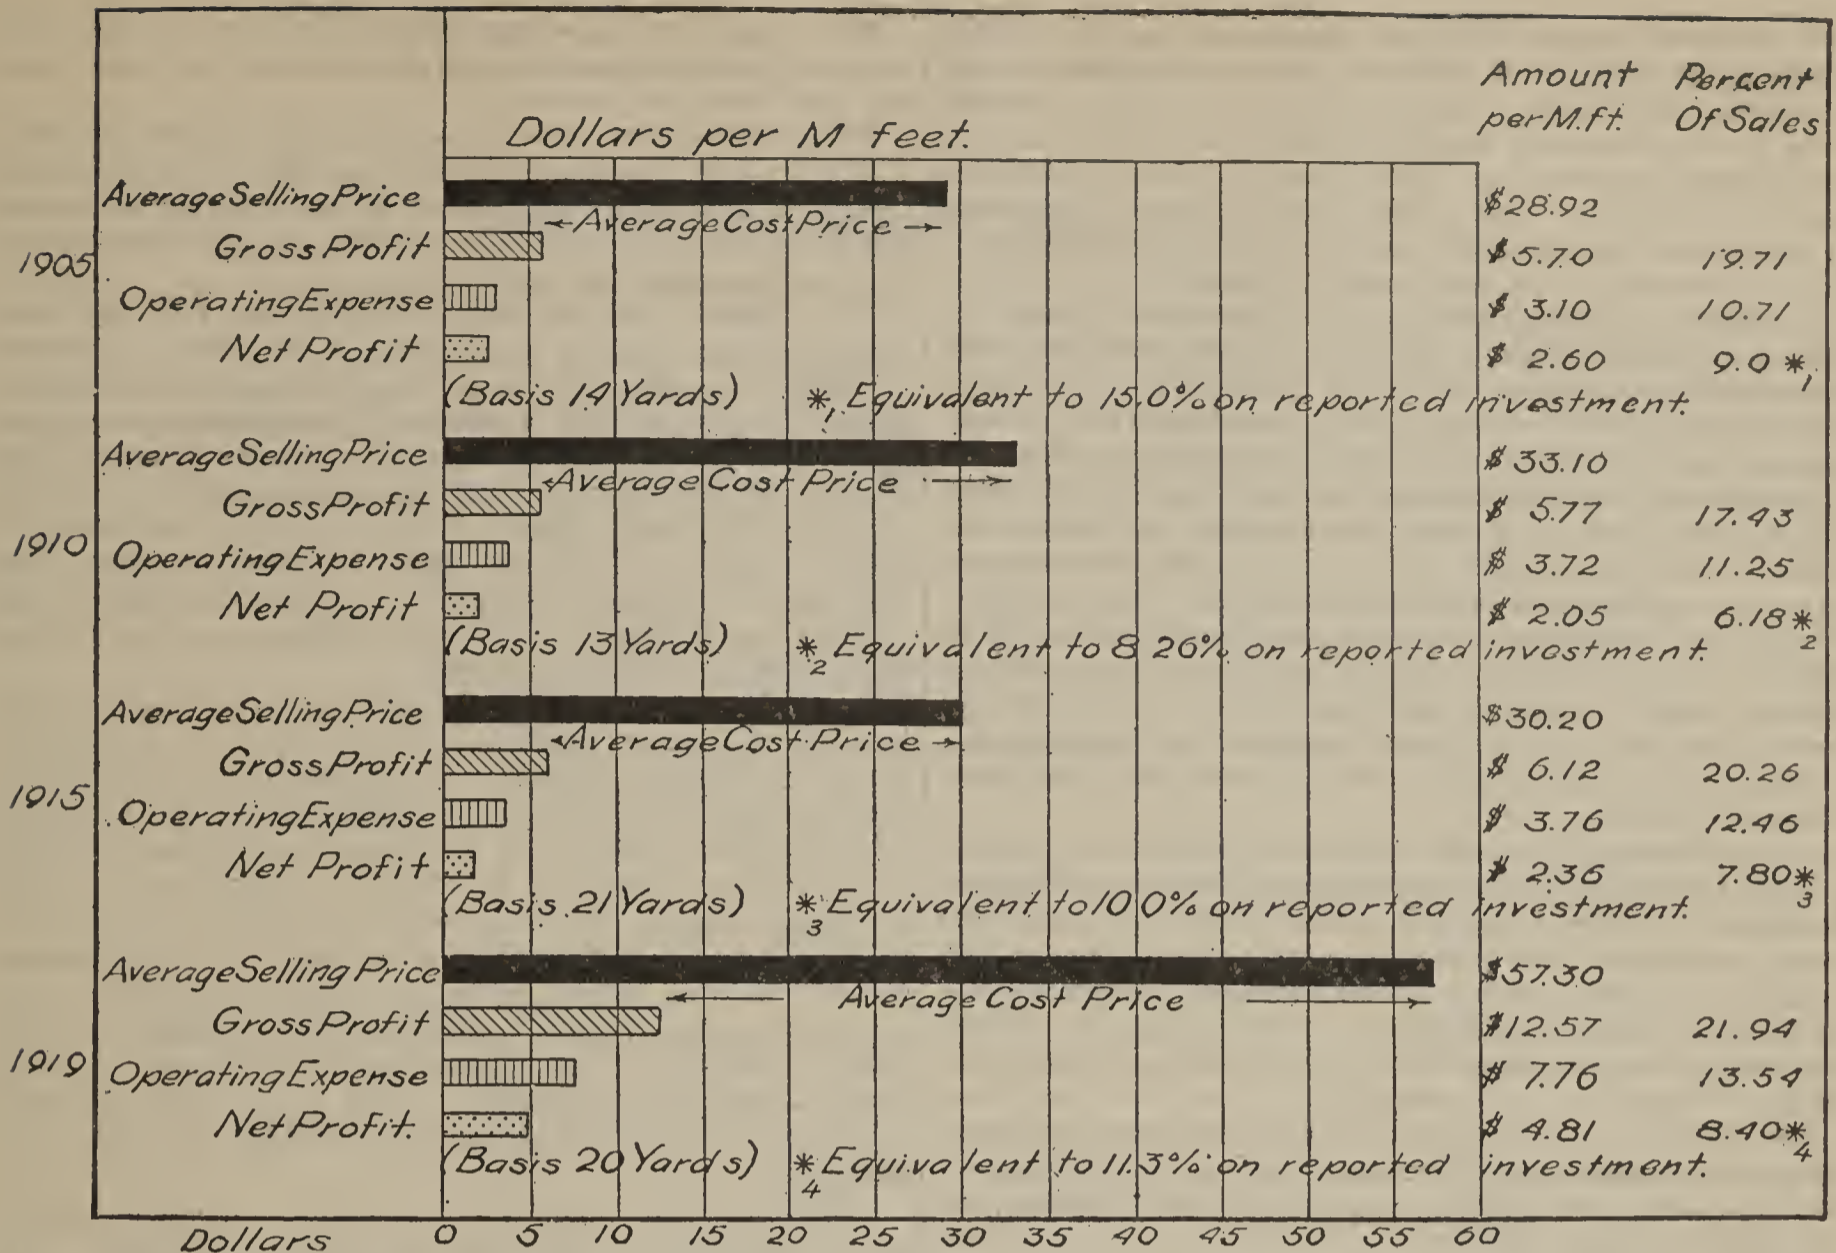 Amount Percent
per M.ft. Of Sales
Dollars per M feet.
1905
Average Selling Price $28.92
←Average Cost Price→
Gross Profit $5.70 19.71
Operating Expense $3.10 10.71
Net Profit $2.60 9.0 *1
(Basis 14 Yards) *1 Equivalent to 15.0% on reported investment.
1910
Average Selling Price $33.10
←Average Cost Price→
Gross Profit $5.77 17.43
Operating Expense $3.72 11.25
Net Profit $2.05 6.18*2
(Basis 13 Yards) *2 Equivalent to 8 26% on reported investment.
1915
Average Selling Price $30.20
←Average Cost Price→
Gross Profit $6.12 20.26
Operating Expense $3.76 12.46
Net Profit $2.36 7.80*3
(Basis 21 Yards) *3 Equivalent to 10 0% on reported investment.
1919
Average Selling Price $57.30
← Average Cost Price →
Gross Profit $12.57 21.94
Operating Expense $7.76 13.54
Net Profit. $4.81 8.40*4
(Basis 20 Yards) *4 Equivalent to 11.3% on reported investment.
Dollars 0 5 10 15 20 25 30 35 40 45 50 55 60